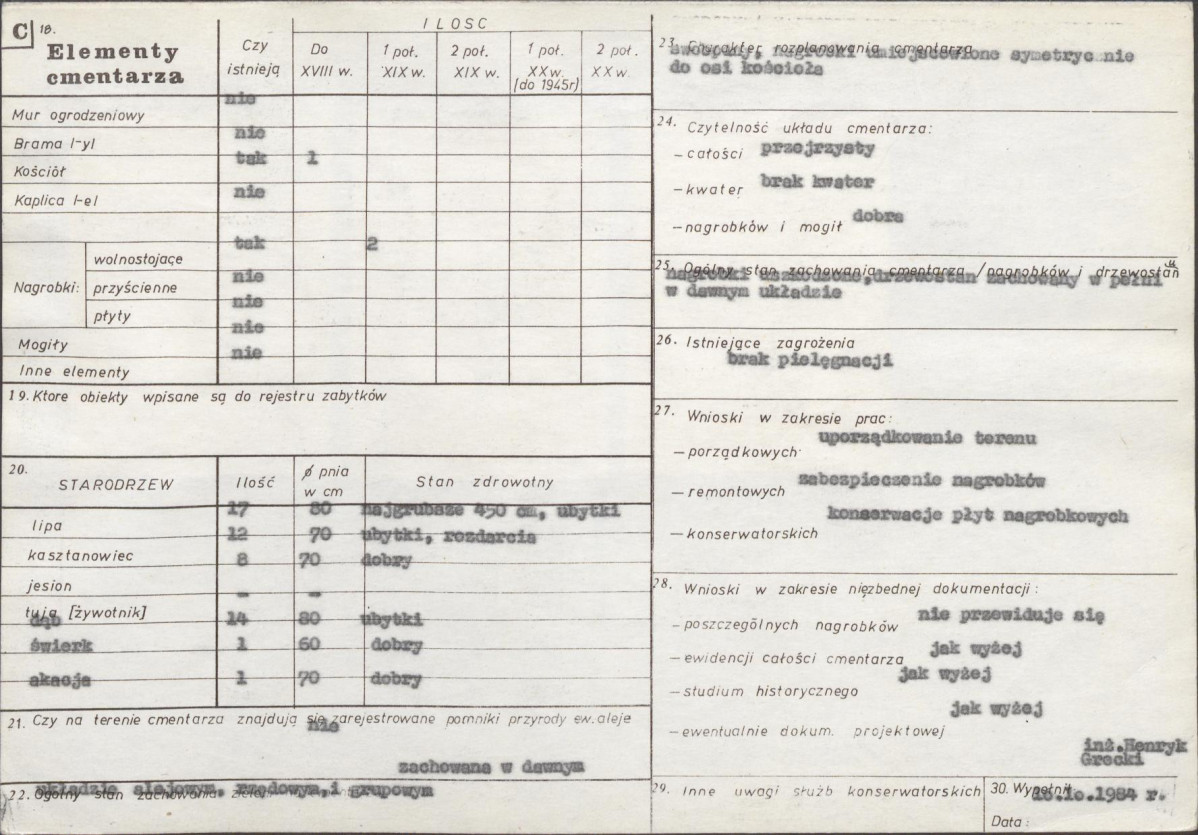 C 18.
Elementy cmentarza
Czy istnieją
I L O S C
Do XVIII w.
1 poł. XIX w.
2 poł. XIX w.
1 poł. XX w. [do 1945r]
2 poł. XX w.
Mur ogrodzeniowy nie
Brama l-yl nie
Kościół tak 1
Kaplica l-el nie
Nagrobki:
wolnostojące tak 2
przyścienne nie
płyty nie
Mogiły nie
Inne elementy nie
19. Ktore obiekty wpisane są do rejestru zabytków
20. STARODRZEW
Ilość
ø pnia w cm
Stan zdrowotny
lipa 17 80 najgrubsze 450 cm, ubytki
kasztanowiec 12 70 ubytki, rozdarcia
jesion 8 70 dobry
tują [żywotnik] - -
dąb 14 80 ubytki
świerk 1 60 dobry
akacja 1 70 dobry
21. Czy na terenie cmentarza znajdują się zarejestrowane pomniki przyrody ew. aleje
nie
zachowana w dawnym
układzie alejowym, rzędowym, i grupowym
22. Ogólny stan zachowania zieleni
23. Charakter rozplanowania cmentarza
swobodny, nagrobki umiejscowione symetrycznie
do osi kościoła
24. Czytelność układu cmentarza:
– całości przejrzysty
– kwater brak kwater
– nagrobków i mogił dobra
25. Ogólny stan zachowania cmentarza /nagrobków i drzewostanu
nagrobki uszkodzone, drzewostan zachowany w pełni
w dawnym układzie
26. Istniejące zagrożenia
brak pielęgnacji
27. Wnioski w zakresie prac:
– porządkowych uporządkowanie terenu
– remontowych zabezpieczenie nagrobków
– konserwatorskich konserwacje płyt nagrobkowych
28. Wnioski w zakresie nięzbednej dokumentacji:
– poszczególnych nagrobków nie przewiduje się
– ewidencji całości cmentarza jak wyżej
– studium historycznego jak wyżej
– ewentualnie dokum. projektowej jak wyżej
29. Inne uwagi służb konserwatorskich
inż. Henryk
Grecki
30. Wypełnił
Data: 16.10.1984 r.